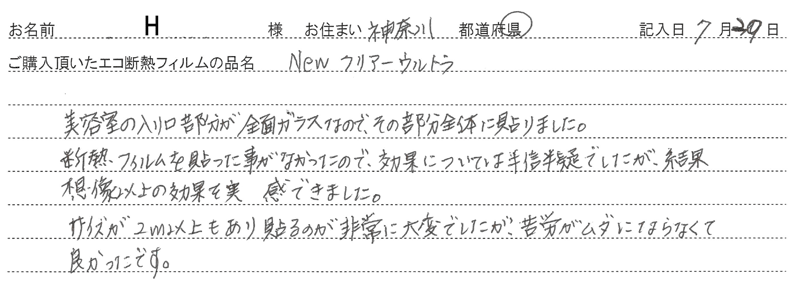 お名前 H 様 お住まい 神奈川 都道府県 記入日 7月29日
ご購入頂いたエコ断熱フィルムの品名 New クリアーウルトラ
美容室の入り口部分が全面ガラスなので、その部分全体に貼りました。
断熱フィルムを貼った事がなかったので、効果については半信半疑でしたが、結果
想像以上の効果を実 感できました。
サイズが2m以上もあり貼るのが非常に大変でしたが、苦労がムダにならなくて
良かったです。